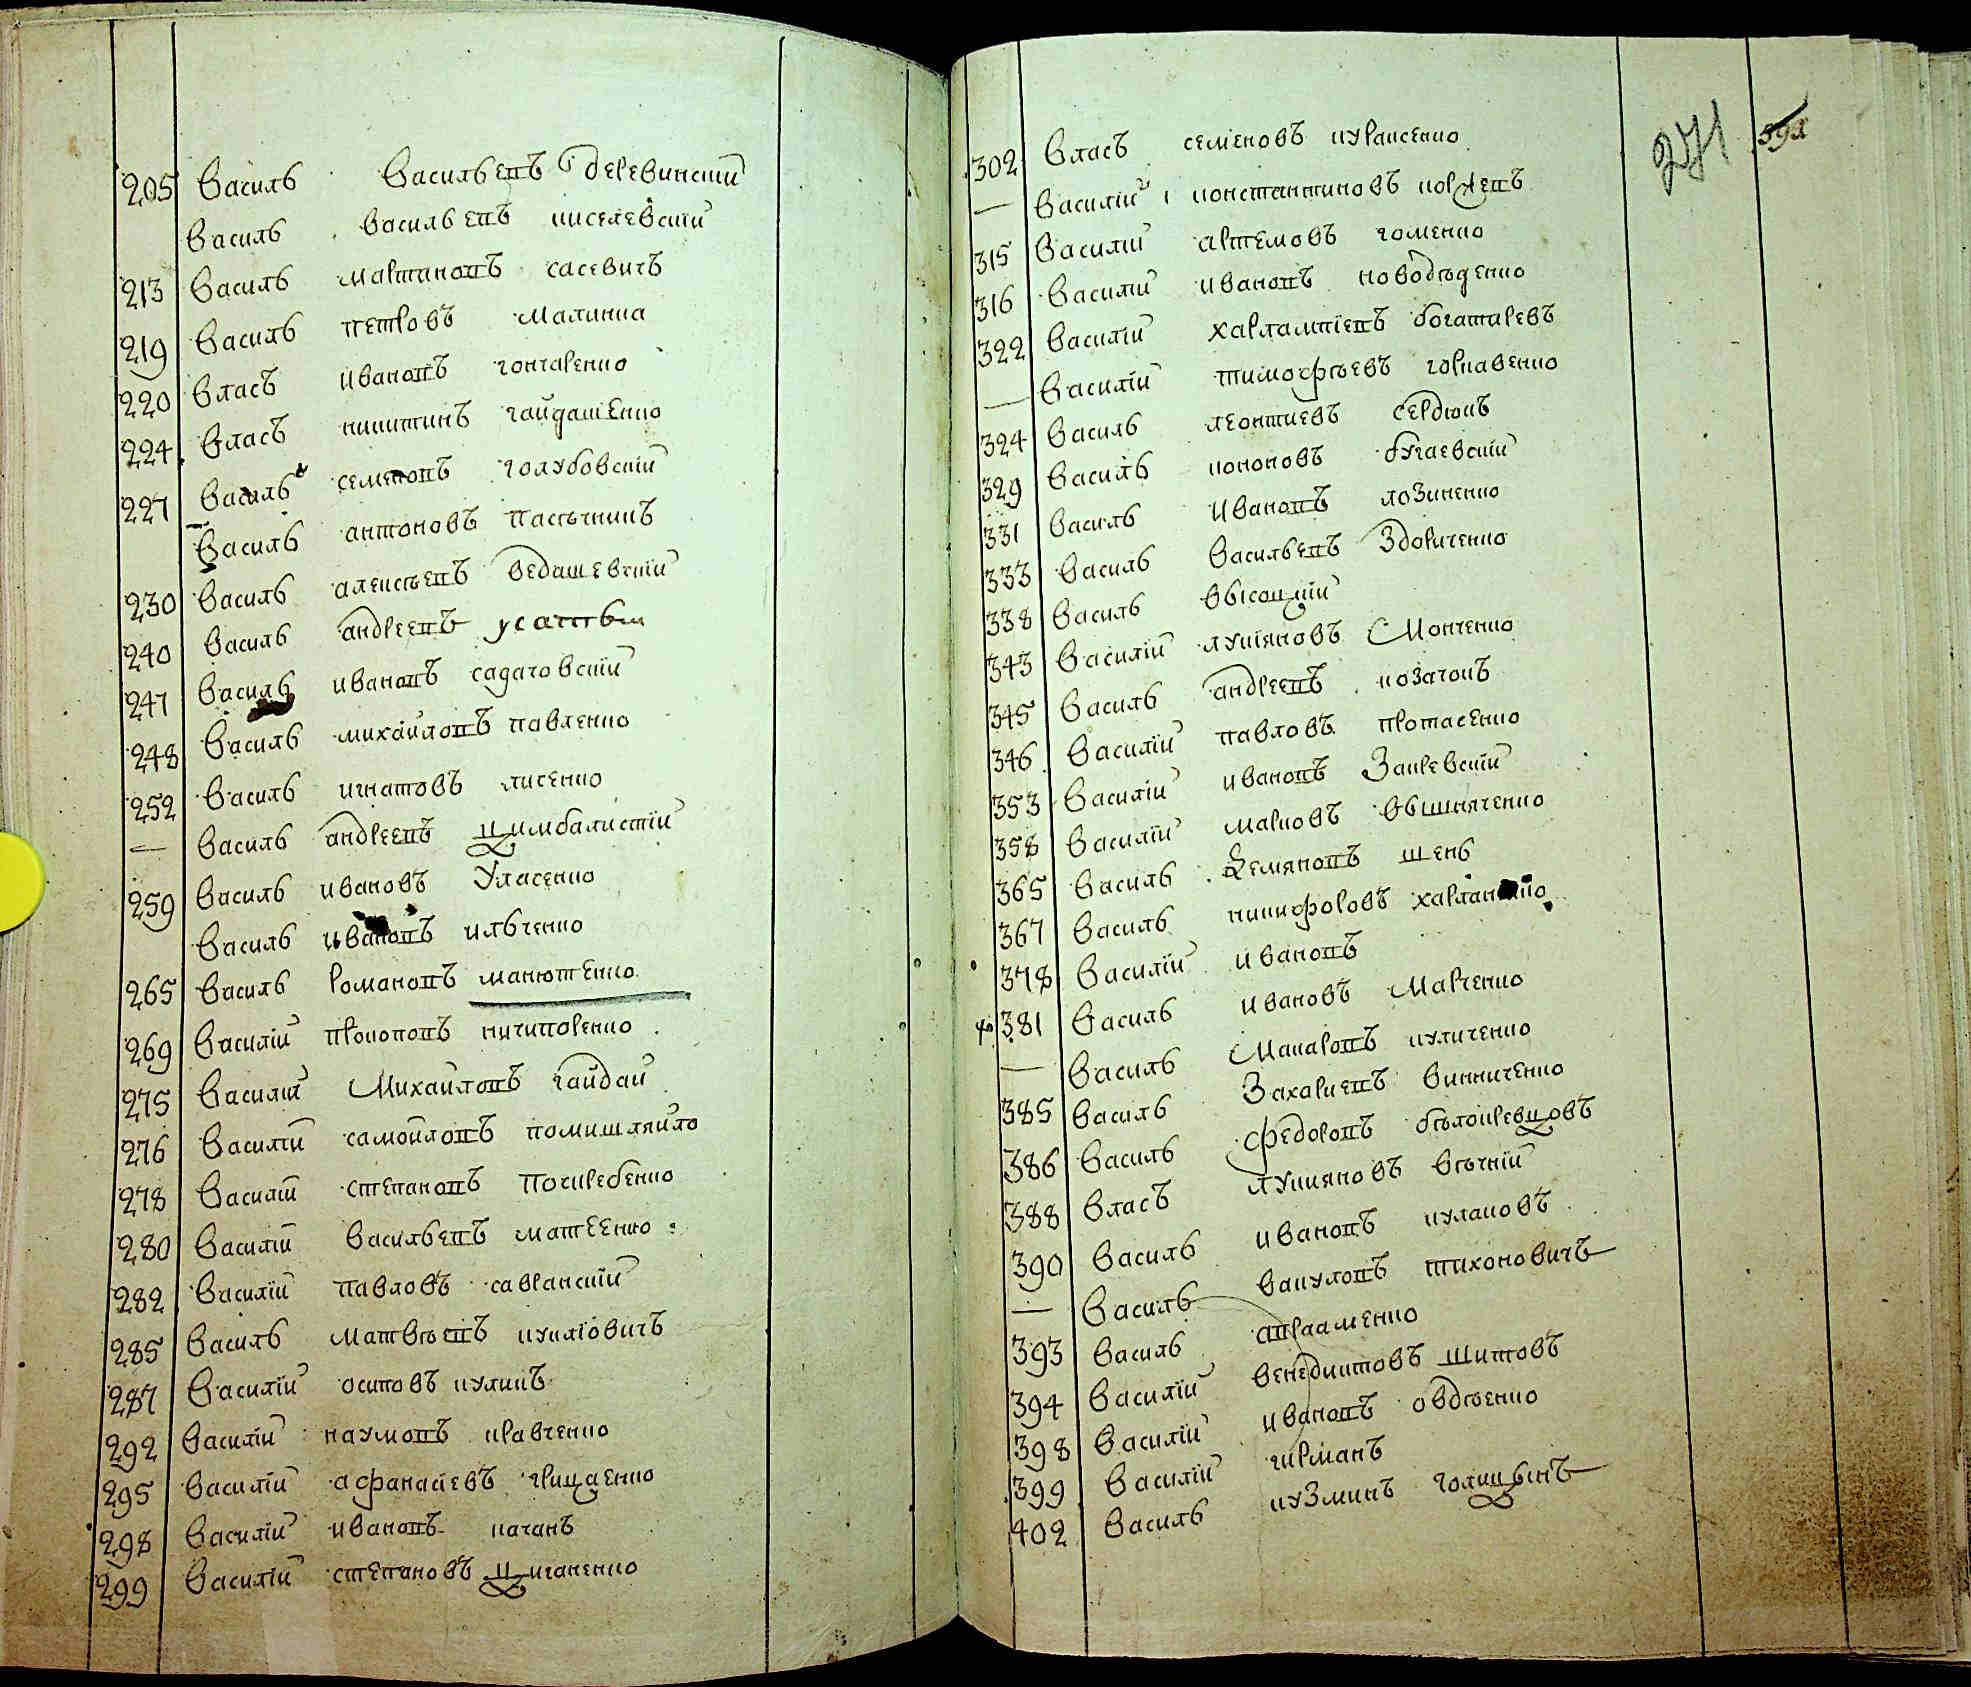 205 Василь Васильевъ деревинский
Василь Васильевъ киселевский
213 Василь мартиновъ сасевичъ
219 Василь петровъ малинка
220 власъ ивановъ гончаренко
224 власъ никитинъ гайдашенко
227 Василь семеновъ голубовский
Василь антоновъ пасѣчникъ
230 Василь алексѣевъ ведашевский
240 Василь андреевъ усатый
247 Василь ивановъ садаговский
248 Василь михайловъ павленко
252 Василь игнатовъ лисенко
— Василь андреевъ цимбалистий
259 Василь ивановъ Уласенко
Василь ивановъ ильченко
265 Василь романовъ манютенко
269 Василий прокоповъ ничипоренко
275 Василий Михайловъ гайдай
276 Василий самойловъ помишляйло
278 Василий степановъ погиребенко
280 Василий Васильевъ матеенко
282 Василий павловъ савранский
285 Василь матвѣевъ кулѣовичъ
287 Василий осиповъ куликъ
292 Василий наумовъ кравченко
295 Василий афанасиевъ грищаенко
298 Василий ивановъ качанъ
299 Василий степановъ циганенко
271
302 власъ семеновъ кураксенко
— Василий константиновъ коржевъ
315 Василий артемовъ гоменко
316 Василий ивановъ новобѣденко
322 Василий харлампиевъ богатиревъ
— Василий тимофѣевъ горкавенко
324 Василь леонтиевъ сердюкъ
329 Василь кононовъ бугаевский
331 Василь ивановъ лозиненко
333 Василь Васильевъ Здориченко
338 Василь высоцкий
343 Василий лукіяновъ Мовченко
345 Василь андреевъ козачокъ
346 Василий павловъ протасенко
353 Василий ивановъ Закревский
358 Василий марковъ вышняченко
365 Василь Демяновъ шень
367 Василь никифоровъ харланенко
378 Василий ивановъ
381 Василь ивановъ Марченко
— Василь Макаровъ куличенко
385 Василь Захариевъ винниченко
386 Василь федоровъ бѣлоцревцовъ
388 власъ лукияновъ вѣчний
390 Василь ивановъ кулаковъ
— Василь вакуловъ тихоновичъ
393 Василь авраменко
394 Василий венедиктовъ шитовъ
398 Василий ивановъ овдѣенко
399 Василий гирманъ
402 Василь кузминъ голицынъ